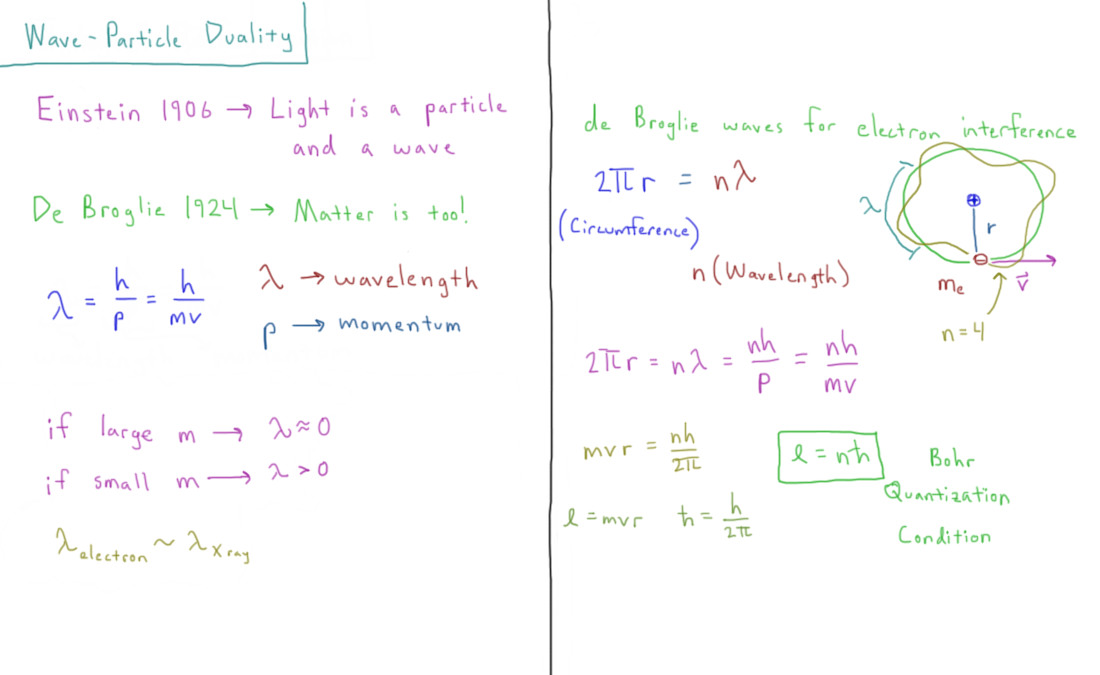 Wave-Particle Duality
Einstein 1906 → Light is a particle
and a wave
De Broglie 1924 → Matter is too!
λ = h/p = h/mv
λ → wavelength
p → momentum
if large m → λ ≈ 0
if small m → λ > 0
λ electron ~ λ X ray
de Broglie waves for electron interference
2πr = nλ
(Circumference)
n (Wavelength)
λ
⊕
r
⊖
mₑ
v⃗
n=4
2πr = nλ = nh/p = nh/mv
mvr = nh/2π
ℓ = nħ
Bohr
Quantization
Condition
ℓ = mvr ħ = h/2π